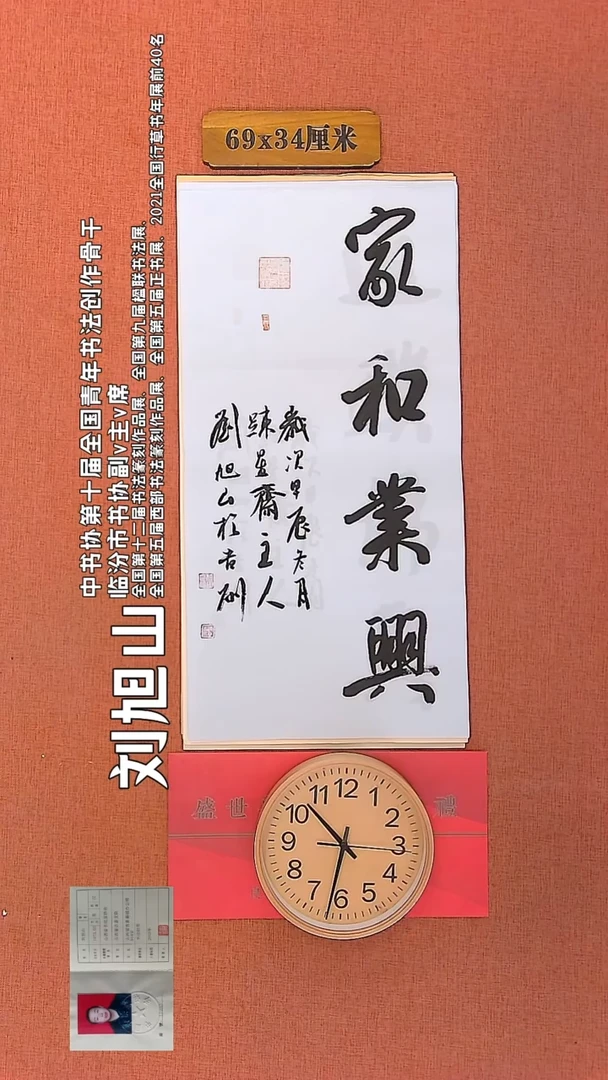 69x34厘米
家和業興
歲次甲辰冬月
疎星齋主人
劉旭山於古硎
刘旭山
中书协第十届全国青年书法创作骨干
临汾市书协副v主v席
全国第十二届书法篆刻作品展、全国第九届楹联书法展、
全国第五届西部书法篆刻作品展、全国第五届正书展、2021全国行草书年展前40名
盛世
禮
12
1
2
3
4
5
6
7
8
9
10
11